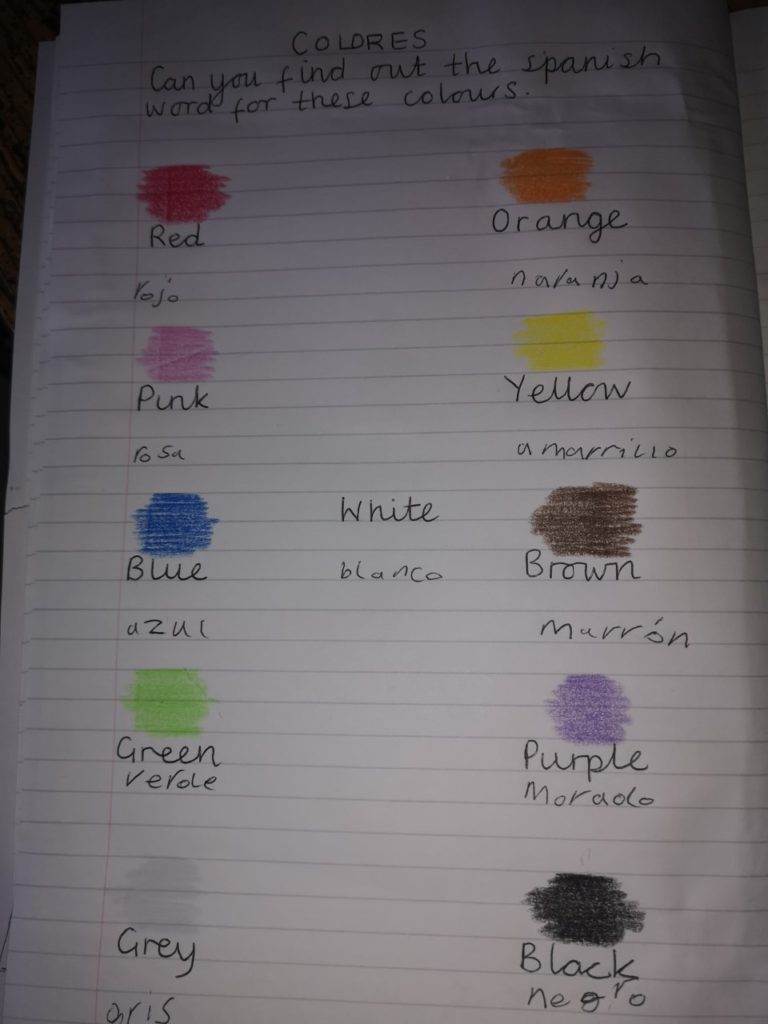 COLORES
Can you find out the spanish
word for these colours.
Red
Orange
rojo
naranja
Pink
Yellow
rosa
amarrillo
White
Blue
blanco
Brown
azul
marrón
Green
Purple
verde
Morado
Grey
Black
gris
negro